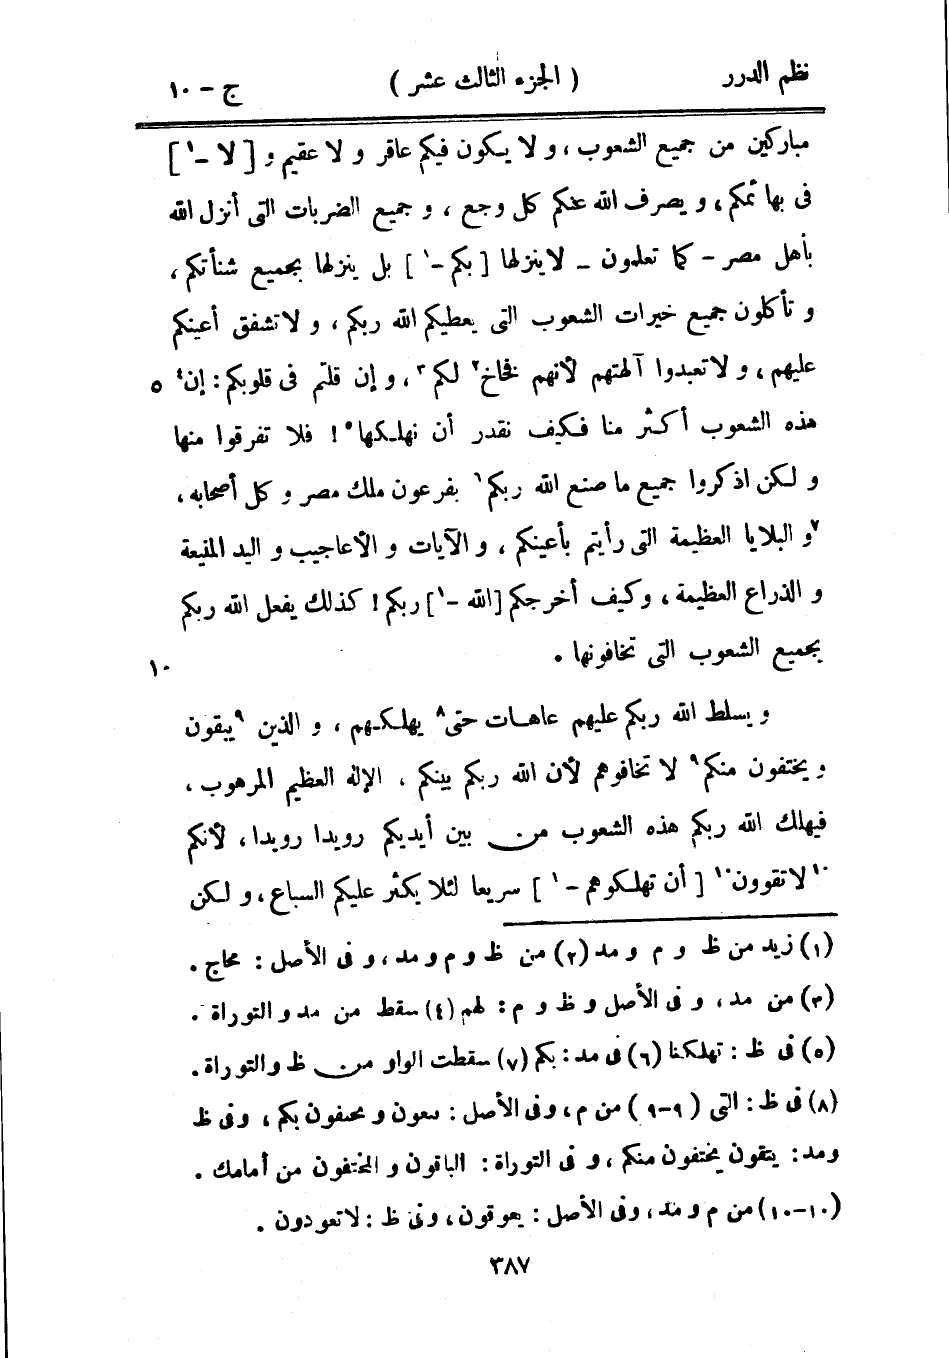 نظم الدرر ( الجزء الثالث عشر ) ج - ١٠
مباركين من جميع الشعوب ، و لا يكون فيكم عاقر و لا عقيم و [ لا - ١ ]
فى بهائمكم ، و يصرف الله عنكم كل وجع ، و جميع الضربات التى أنزل الله
بأهل مصر - كما تعلمون - لا ينزلها [ بكم - ١ ] بل ينزلها بجميع شنأتكم ،
و تأكلون جميع خيرات الشعوب التى يعطيكم الله ربكم ، و لا تشفق أعينكم
عليهم ، و لا تعبدوا آلهتهم لأنهم فخاخ٢ لكم٣ ، و إن قلتم فى قلوبكم : إن٤ ٥
هذه الشعوب أكثر منا فكيف نقدر أن نهلكها٥ ! فلا تفرقوا منها
و لكن اذكروا جميع ما صنع الله ربكم٦ بفرعون ملك مصر و كل أصحابه ،
٧و البلايا العظيمة التى رأيتم بأعينكم ، و الآيات و الأعاجيب و اليد المنيعة
و الذراع العظيمة ، و كيف أخرجكم [ الله - ١ ] ربكم ! كذلك يفعل الله ربكم
بجميع الشعوب التى تخافونها . ١٠
و يسلط الله ربكم عليهم عاهات حتى٨ يهلكهم ، و الذين ٩يبقون
و يختفون منكم٩ لا تخافوهم لأن الله ربكم بينكم ، الإله العظيم المرهوب ،
فيهلك الله ربكم هذه الشعوب من بين أيديكم رويدا رويدا ، لأنكم
١٠لا تقوون١٠ [ أن تهلكوهم - ١ ] سريعا لئلا يكثر عليكم السباع ، و لكن
(١) زيد من ظ و م و مد (٢) من ظ و م و مد ، و فى الأصل : محاج .
(٣) من مد ، و فى الأصل و ظ و م : لهم (٤) سقط من مد و التوراة .
(٥) فى ظ : تهلكنا (٦) فى مد : بكم (٧) سقطت الواو من ظ و التوراة .
(٨) فى ظ : التى ( ٩-٩ ) من م ، و فى الأصل : سعون و محىفون بكم ، و فى ظ
و مد : يتقون يختفون منكم ، و فى التوراة : الباقون و المختفون من أمامك .
(١٠-١٠) من م و مد ، و فى الأصل : يعوقون ، و فى ظ : لا تعودون .
٣٨٧